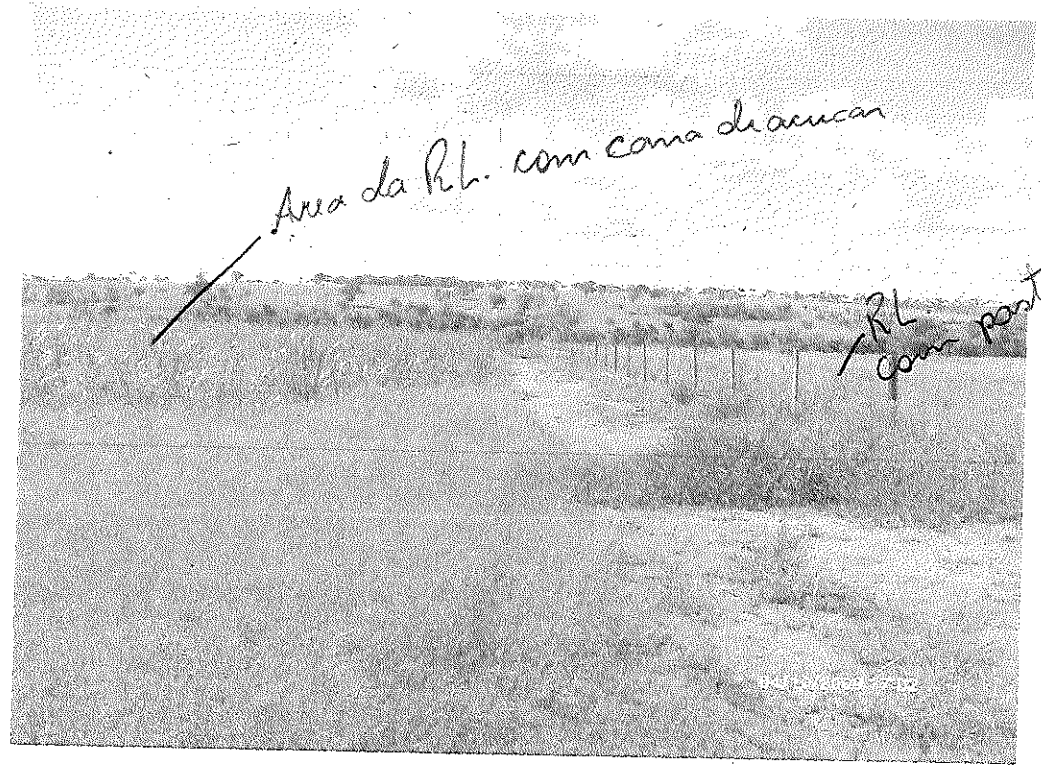 Area da R.L. com cana diacucar
RL
com past